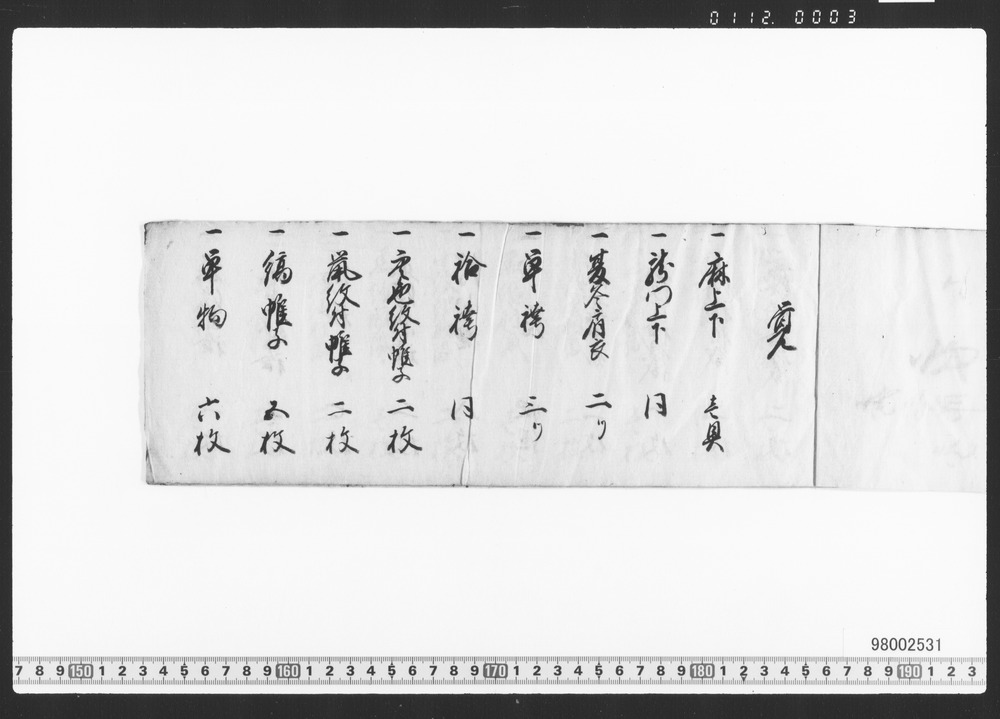 0112. 0003
覚
一 麻上下 壱具
一 龍門上下 同
一 夏冬肩衣 二ツ
一 単袴 三ツ
一 袷袴 同
一 紋付帷子 二枚
一 紋付帷子 二枚
一 縞帷子 五枚
一 単物 六枚
98002531
7 8 9 150 1 2 3 4 5 6 7 8 9 160 1 2 3 4 5 6 7 8 9 170 1 2 3 4 5 6 7 8 9 180 1 2 3 4 5 6 7 8 9 190 1 2 3